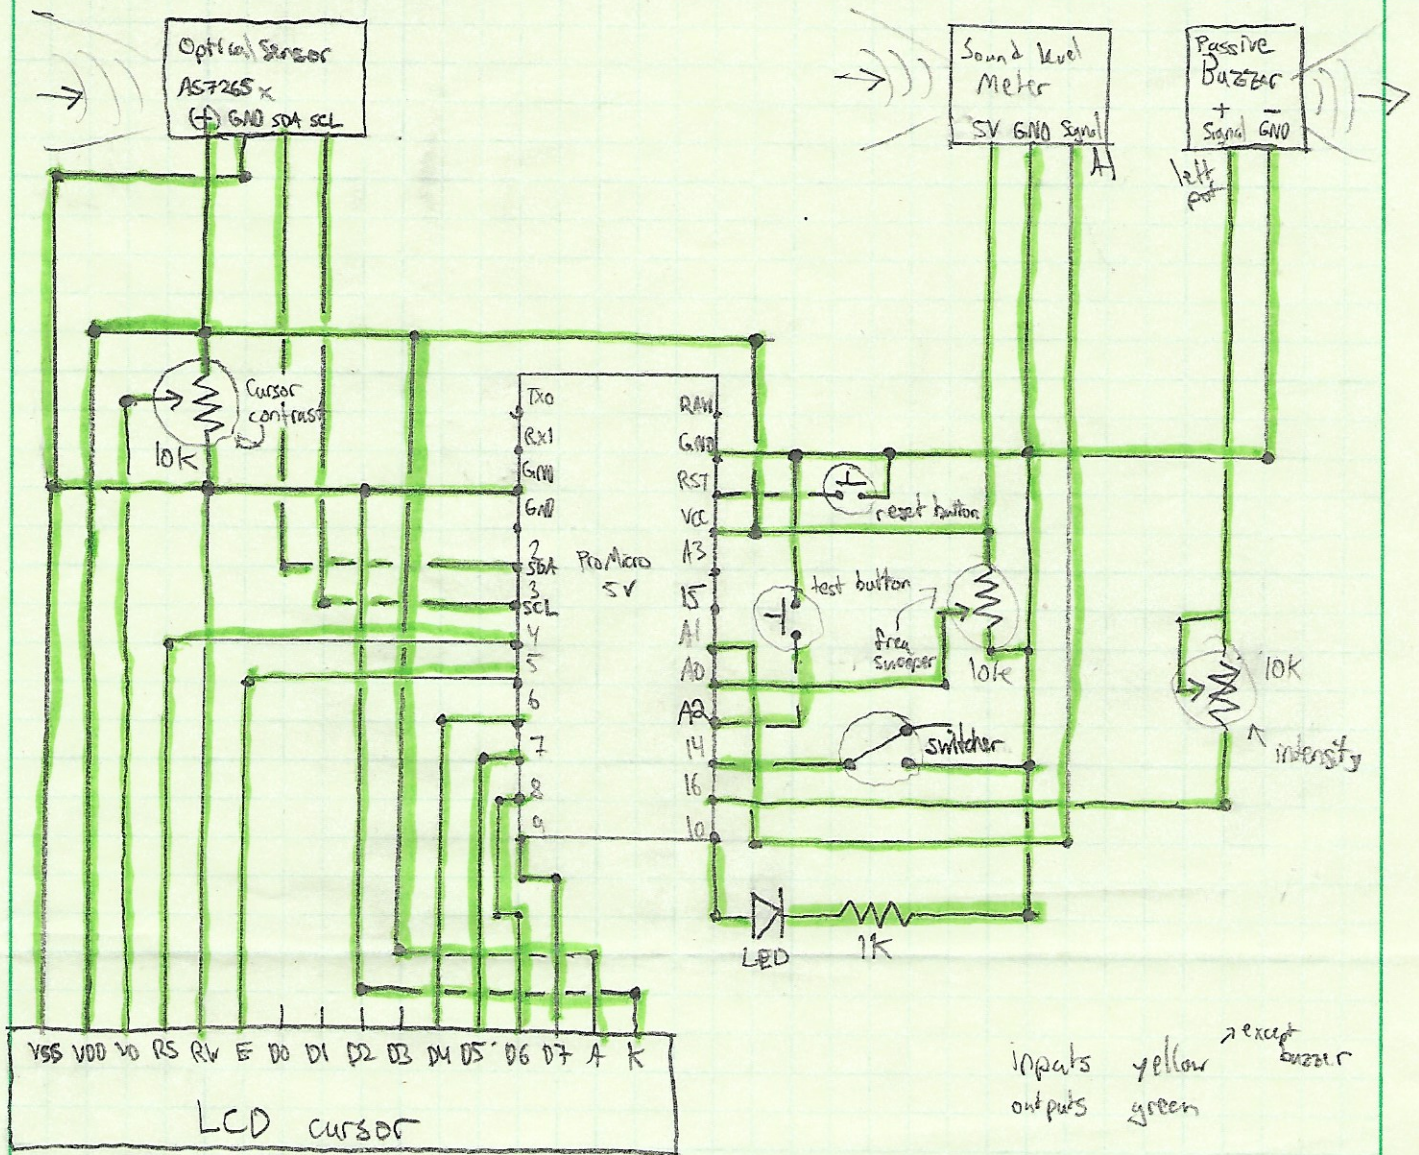 Optical Sensor
AS7265x
(+) GND SDA SCL
Sound level
Meter
5V GND Signal
A1
Passive
Buzzer
+ −
Signal GND
left
pot
Cursor
contrast
10K
TX0
RX1
GND
GND
2
SDA
3
SCL
4
5
6
7
8
9
ProMicro
5V
RAW
GND
RST
VCC
A3
15
A1
A0
A2
14
16
10
reset button
test button
freq
sweeper
10k
switcher
10K
intensity
LED
1K
VSS VDD V0 RS RW E D0 D1 D2 D3 D4 D5 D6 D7 A K
LCD cursor
inputs yellow except
buzzer
outputs green